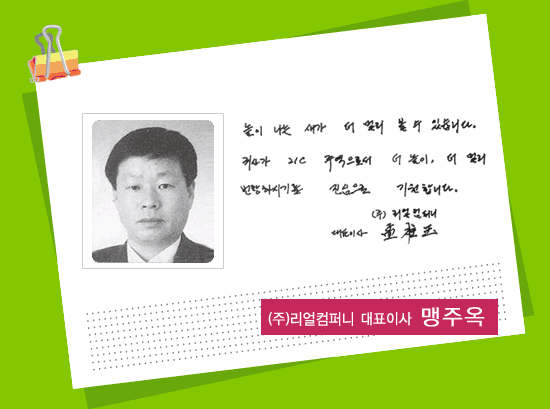 높이 나는 새가 더 멀리 볼 수 있습니다.
귀사가 21C 주역으로서 더 높이, 더 멀리
번창하시기를 진심으로 기원합니다.
(주) 리얼컴퍼니
대표이사
(주)리얼컴퍼니 대표이사 맹주옥